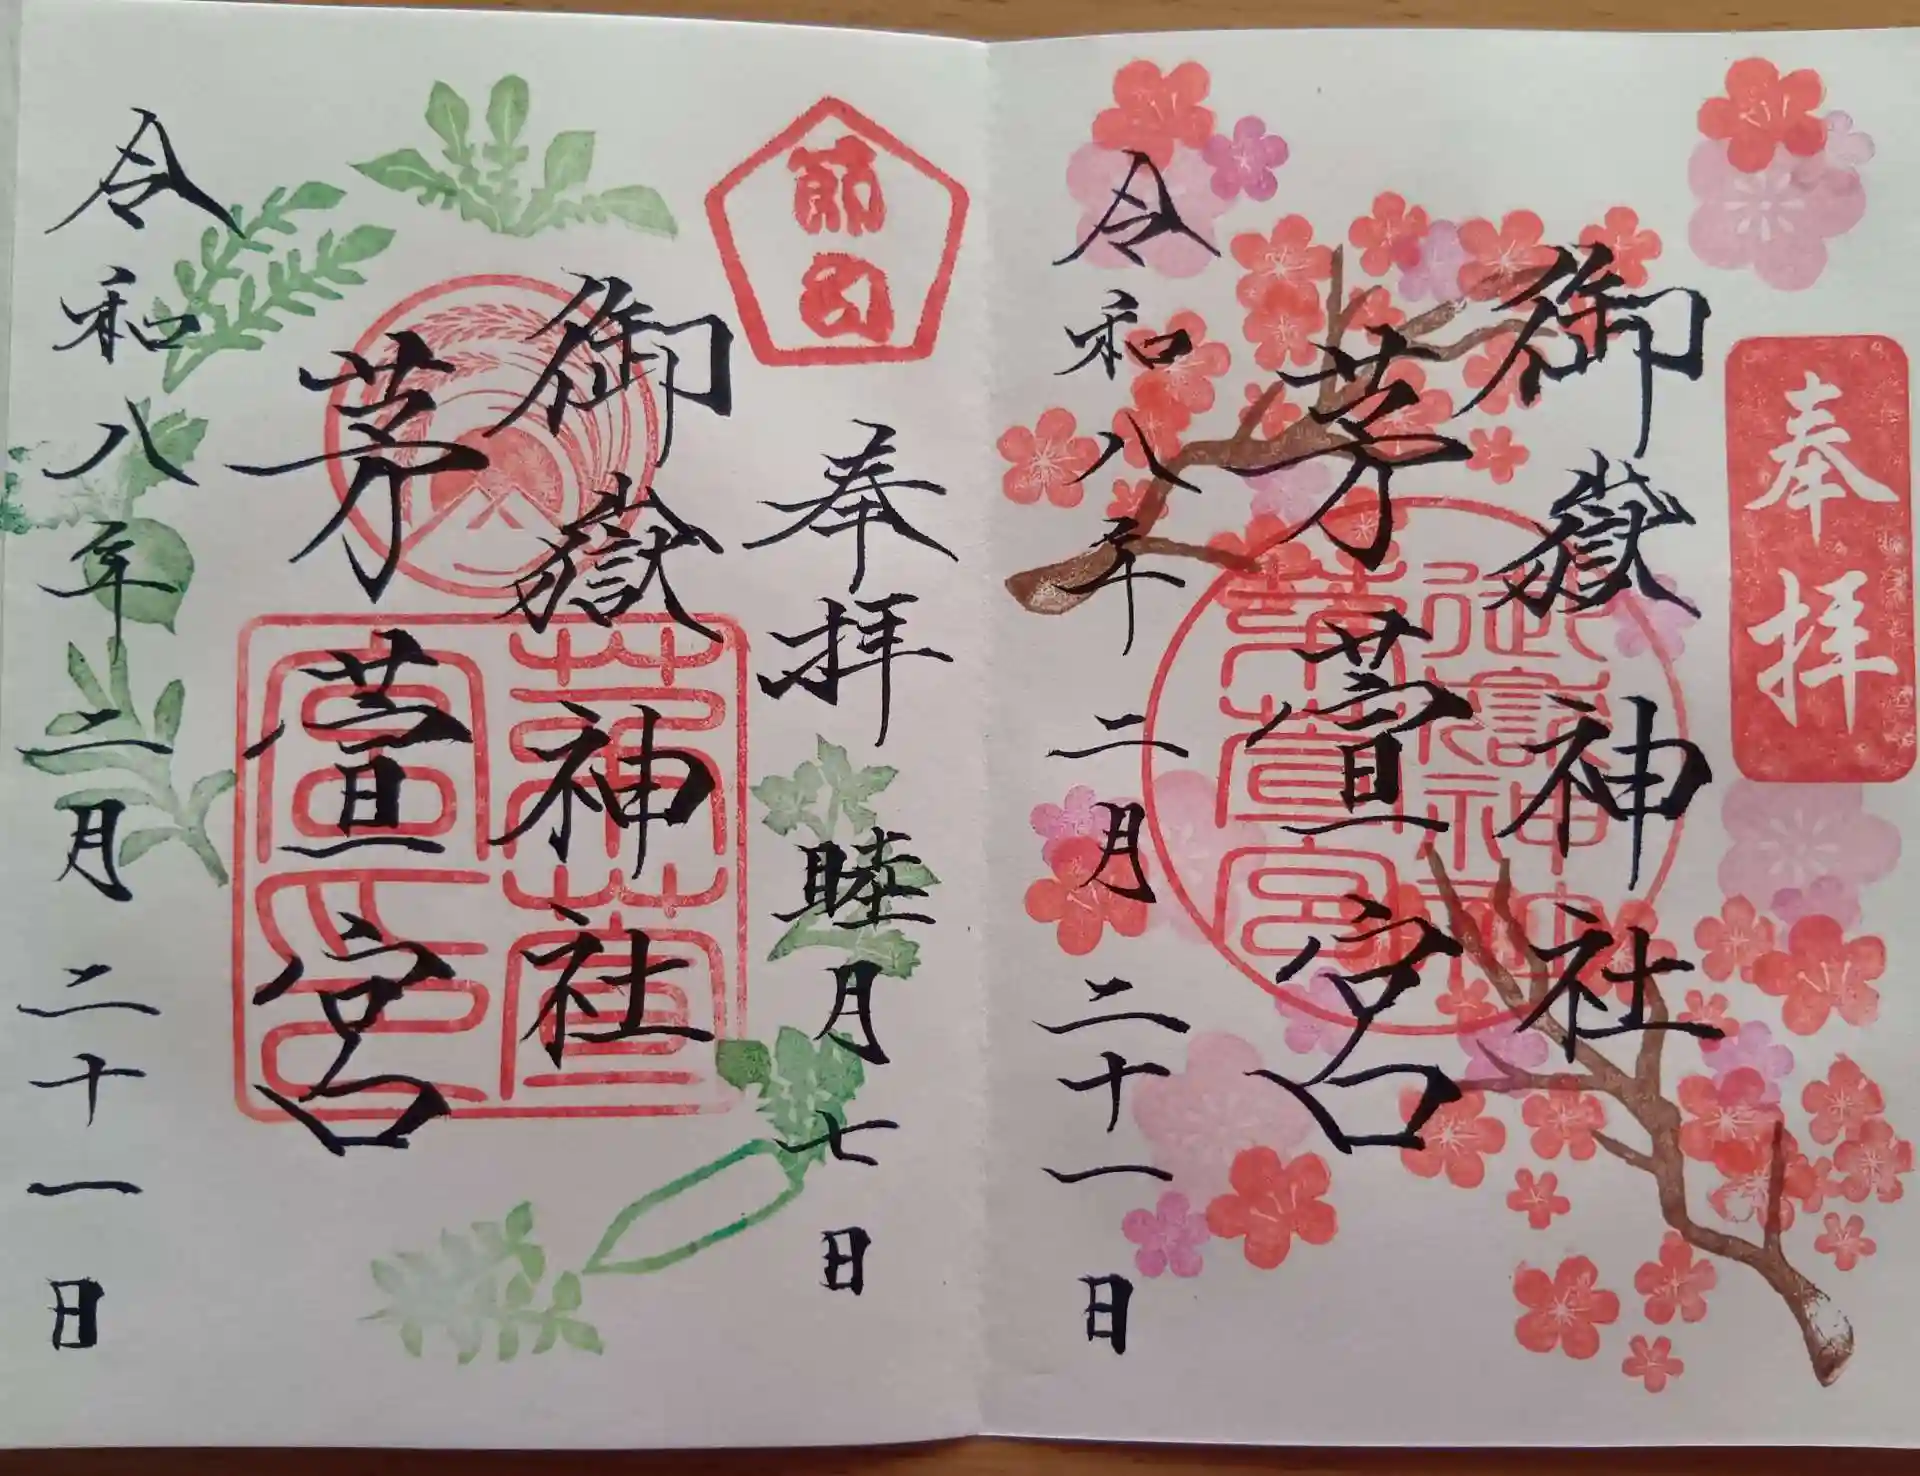 奉拝
御嶽神社
茅萱宮
御嶽神社
茅萱宮
令和八年二月二十一日
節句
奉拝
睦月七日
御嶽神社
茅萱宮
茅萱宮印
令和八年二月二十一日